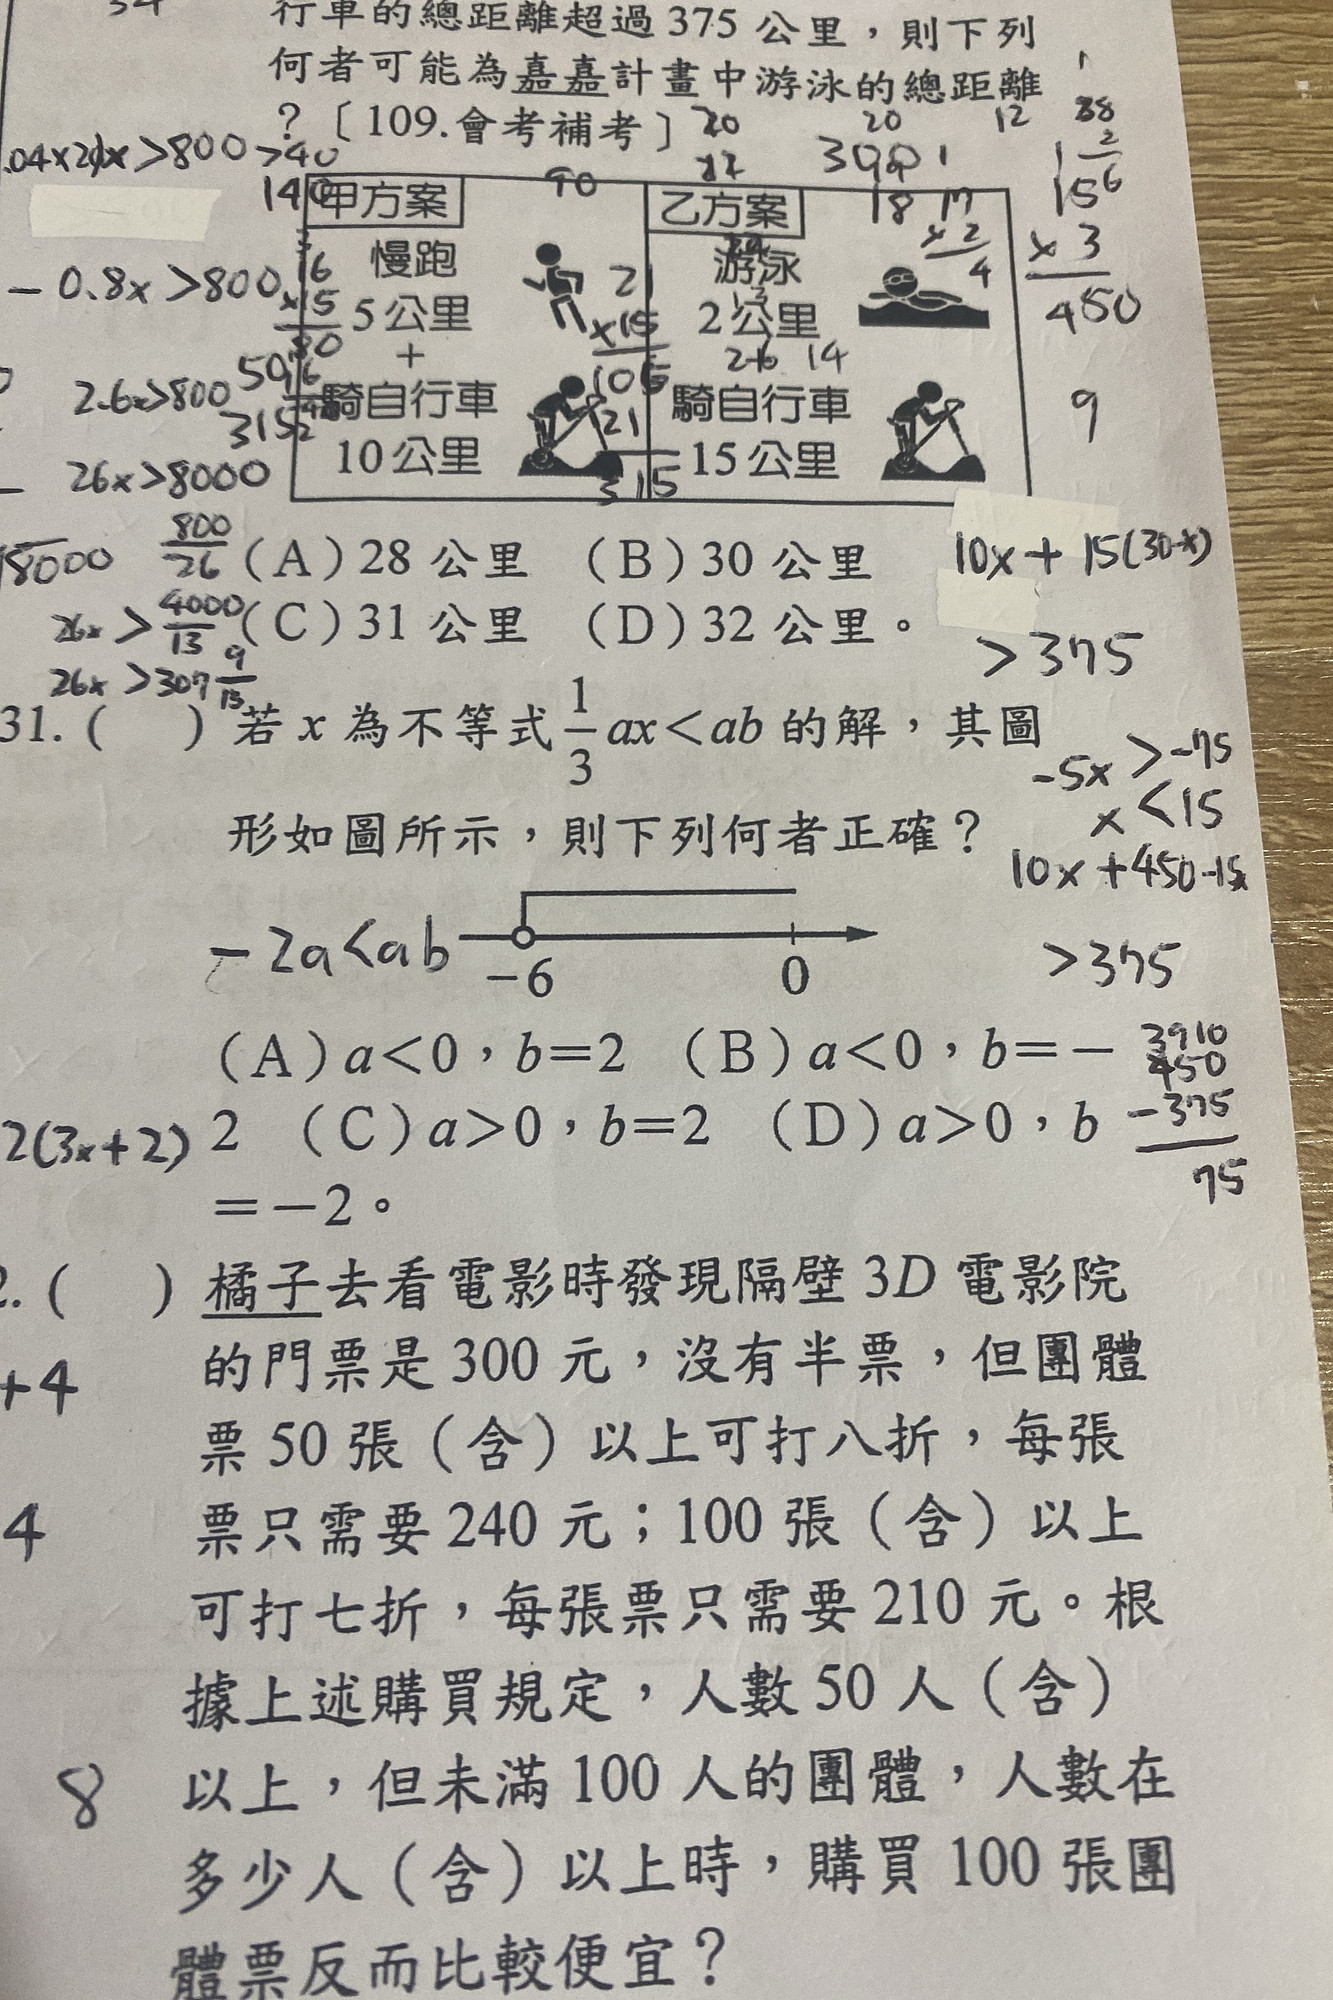 行車的總距離超過 375 公里，則下列
何者可能為嘉嘉計畫中游泳的總距離
？〔109.會考補考〕
20 20 12 88
.04x20x>800 >40
140
90
3001
18 17
x2
4
2
156
x3
450
甲方案 乙方案
慢跑 游泳
5公里 2公里
+ 26 14
騎自行車 騎自行車
10公里 15公里
- 0.8x >800
16
x15
80
21
x15
105
21
315
9
2.6x>800
315
26x>8000
18000
800
26
26x > 4000
13
26x >307 9
13
(A)28 公里 (B)30 公里
(C)31 公里 (D)32 公里。
10x + 15(30-x)
>375
-5x >-75
x<15
10x+450-15x
>375
3910
450
-375
75
31.( ) 若 x 為不等式 1/3 ax<ab 的解，其圖
形如圖所示，則下列何者正確？
-2a<ab
-6 0
(A)a<0，b=2 (B)a<0，b=－
2 (C)a>0，b=2 (D)a>0，b
=－2。
2(3x+2)
2.( ) 橘子去看電影時發現隔壁 3D 電影院
的門票是 300 元，沒有半票，但團體
+4
票 50 張（含）以上可打八折，每張
票只需要 240 元；100 張（含）以上
4
可打七折，每張票只需要 210 元。根
據上述購買規定，人數 50 人（含）
以上，但未滿 100 人的團體，人數在
8
多少人（含）以上時，購買 100 張團
體票反而比較便宜？